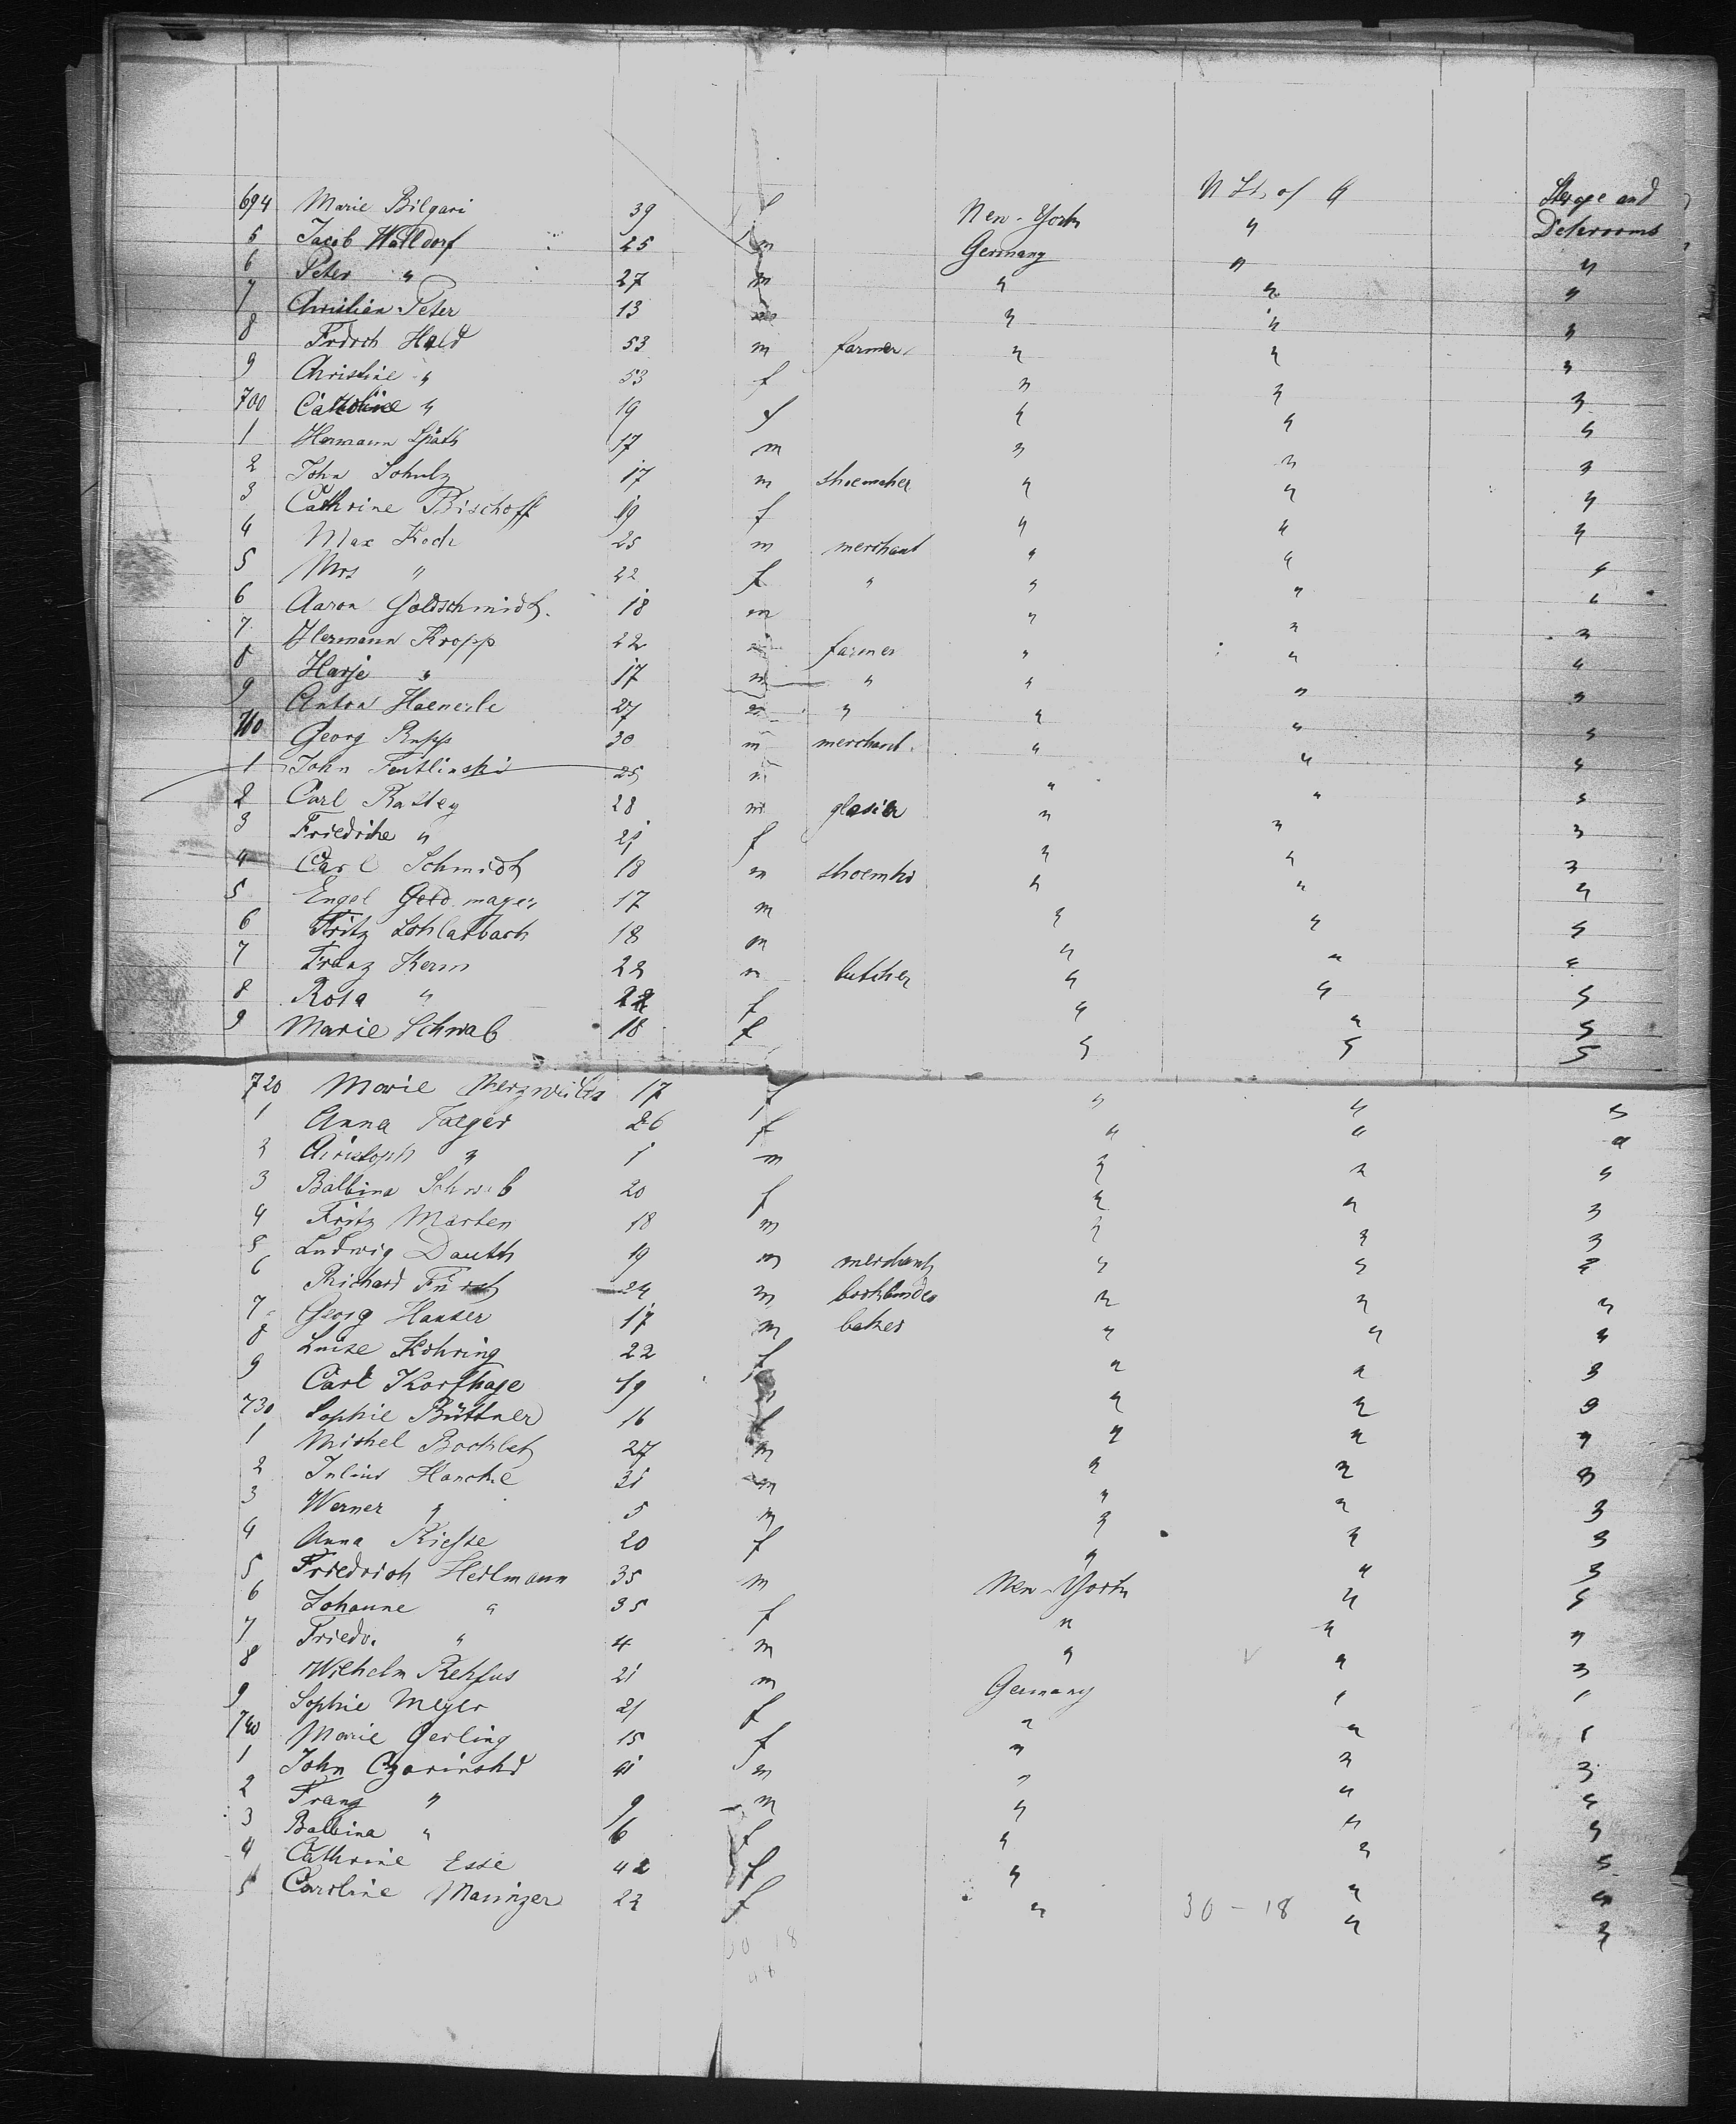 694 Marie Bilgari 39 f New-York U St. of A Sterage and
5 Jacob Walldorf 25 m Germany " Deterooms
6 Peter " 27 m " " "
7 Christian Peter 13 m " " "
8 Fridrch Held 53 m farmer " " "
9 Christine " 53 f " " "
700 Caroline " 19 f " " "
1 Hermann Späth 17 m " " "
2 John Schulz 17 m shoemaker " " "
3 Cathrine Bischoff 19 f " " "
4 Max Koch 25 m merchant " " "
5 Mrs " 22 f " " " "
6 Aaron Goldschmidt. 18 m " " "
7 Hermann Kropp 22 m farmer " " "
8 Harje " 17 m " " " "
9 Anton Haenerle 27 m " " " "
710 Georg Rupp 30 m merchant " " "
1 John 25 m " " "
2 Carl Rattey 28 m glasier " " "
3 Friedrike " 21 f " " "
4 Carl Schmidt 18 m shoemkr " " "
5 Engel Geldmayer 17 m " " "
6 Fritz Schlarbach 18 m " " "
7 Franz Kerm 22 m butcher " " "
8 Rosa " 22 f " " "
9 Marie Schwab 18 f " " "
720 Marie Merzweiler 17 f " " "
1 Anna Jaeger 26 f " " "
2 Christoph " 1 m " " "
3 Balbina Schwab 20 f " " "
4 Fritz Marten 18 m " " "
5 Ludwig Dauth 19 m merchant " " "
6 Richard Fürst 24 m bookbinder " " "
7 Georg Hauser 17 m baker " " "
8 Luise Köhring 22 f " " "
9 Carl Korthage 19 " " "
730 Sophie Büttner 16 f " " "
1 Michel Bocklet 27 m " " "
2 Julius Hanckel 31 m " " "
3 Werner " 5 m " " "
4 Anna Kiesse 20 f " " "
5 Friedrich Heilmann 35 m New-York " "
6 Johanne " 35 f " " "
7 Friedr. " 4 m " " "
8 Wilhelm Rehfus 21 m Germany " "
9 Sophie Meyer 21 f " " "
740 Marie Gerling 15 f " " "
1 John Czarinski 41 m " " "
2 Franz " 9 m " " "
3 Balbina " 6 f " " "
4 Cathrine Esse 42 f " " "
5 Caroline Maninger 22 f " 30-18 " "